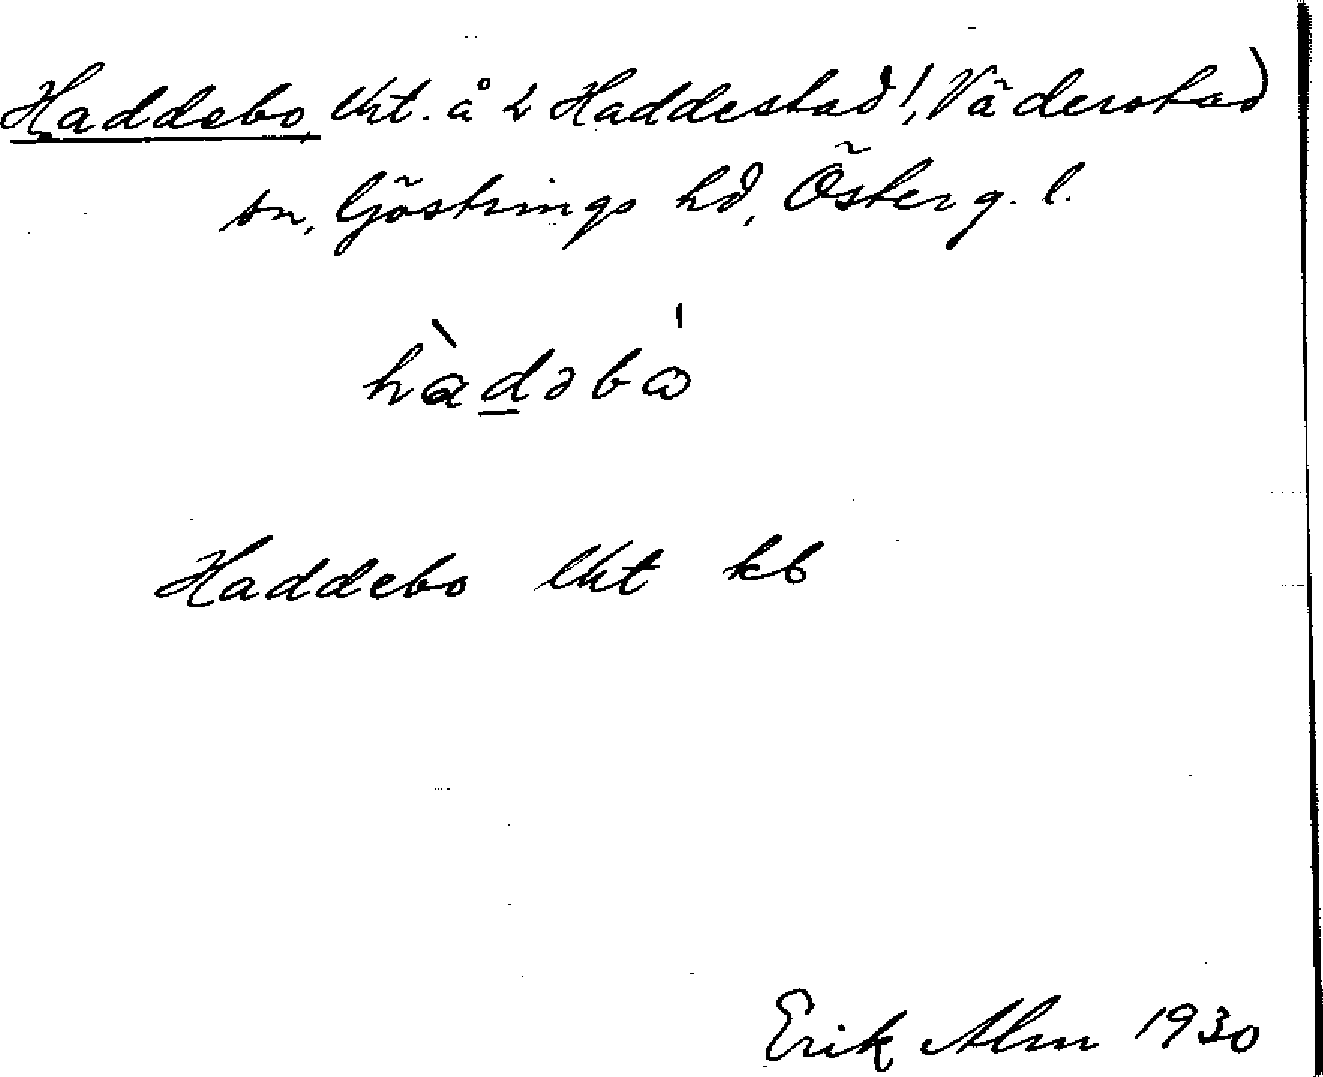 Haddebo, lht. å L Haddestad!, Väderstad
sn, Göstrings hd, Österg. l.
hàdəbó
Haddebo lht kb
Erik Alm 1930